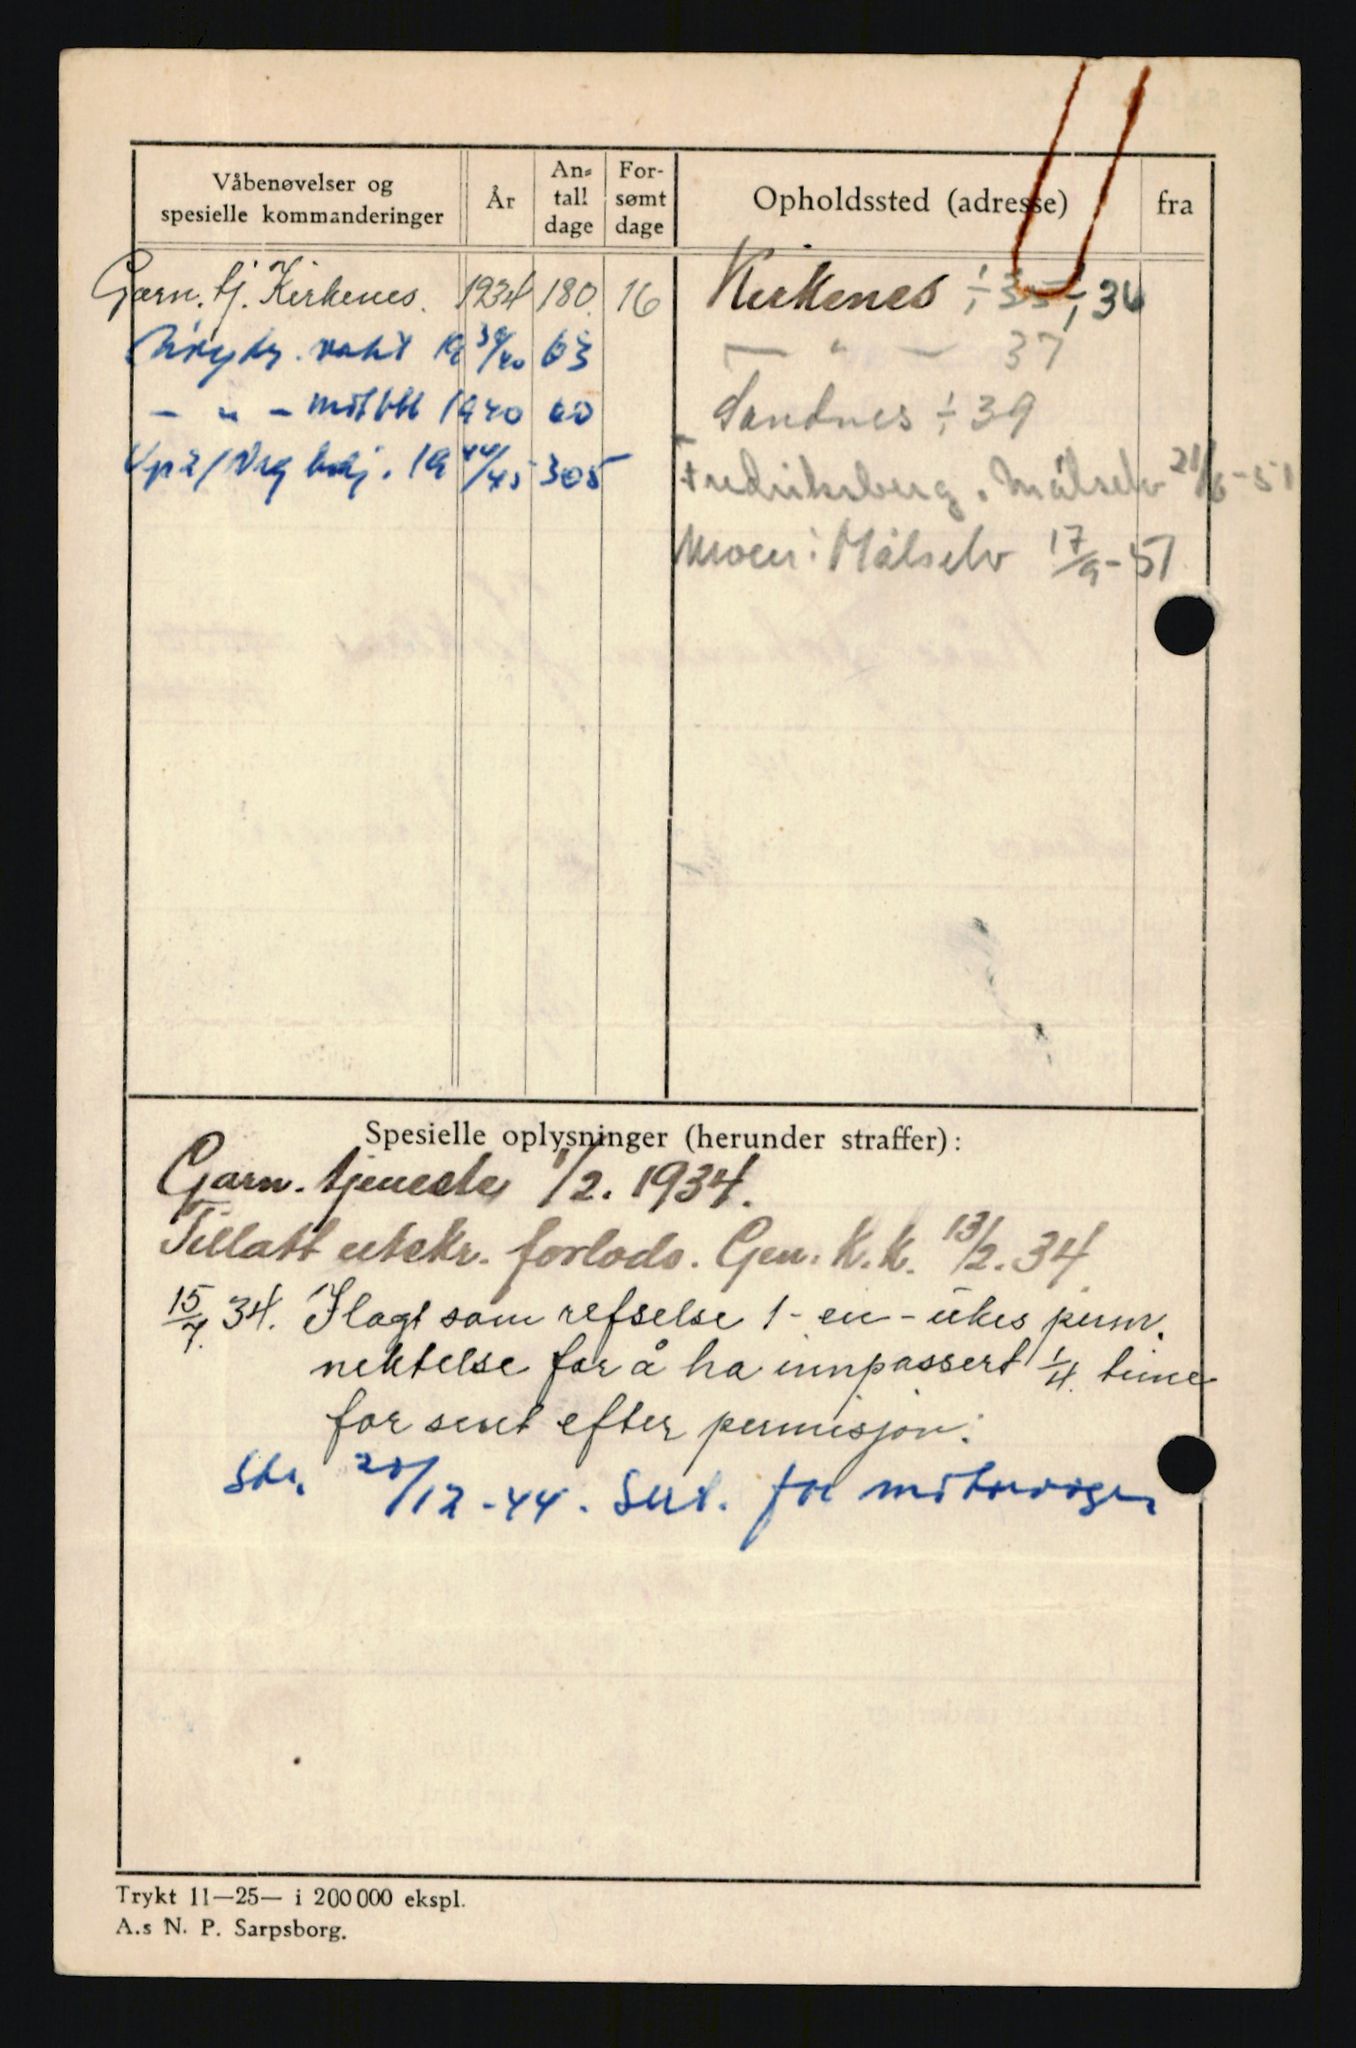 Våbenøvelser og
spesielle kommanderinger
År
An-
tall
dage
For-
sømt
dage
Opholdssted (adresse)
fra
Garn. tj. Kirkenes. 1934 180. 16
vakt 19 39/40 63
— " — 1940 60
19 44/45 305
Kirkenes ÷ 35 ÷ 36
— " — 37
Sandnes ÷ 39
Fredriksberg. Målselv 21/6 - 51
Moen i Målselv 17/9 - 51
Spesielle oplysninger (herunder straffer):
Garn. tjeneste 1/2. 1934.
Tillatt utskr. forlods. Gen. K.K. 13/2. 34
15/7. 34. Ilagt som refselse 1 - en - ukes perm.
nektelse for å ha innpassert 1/4. time
for sent efter permisjon.
20/12 - 44. Sert. for motorvogn
Trykt 11—25— i 200 000 ekspl.
A.s N. P. Sarpsborg.